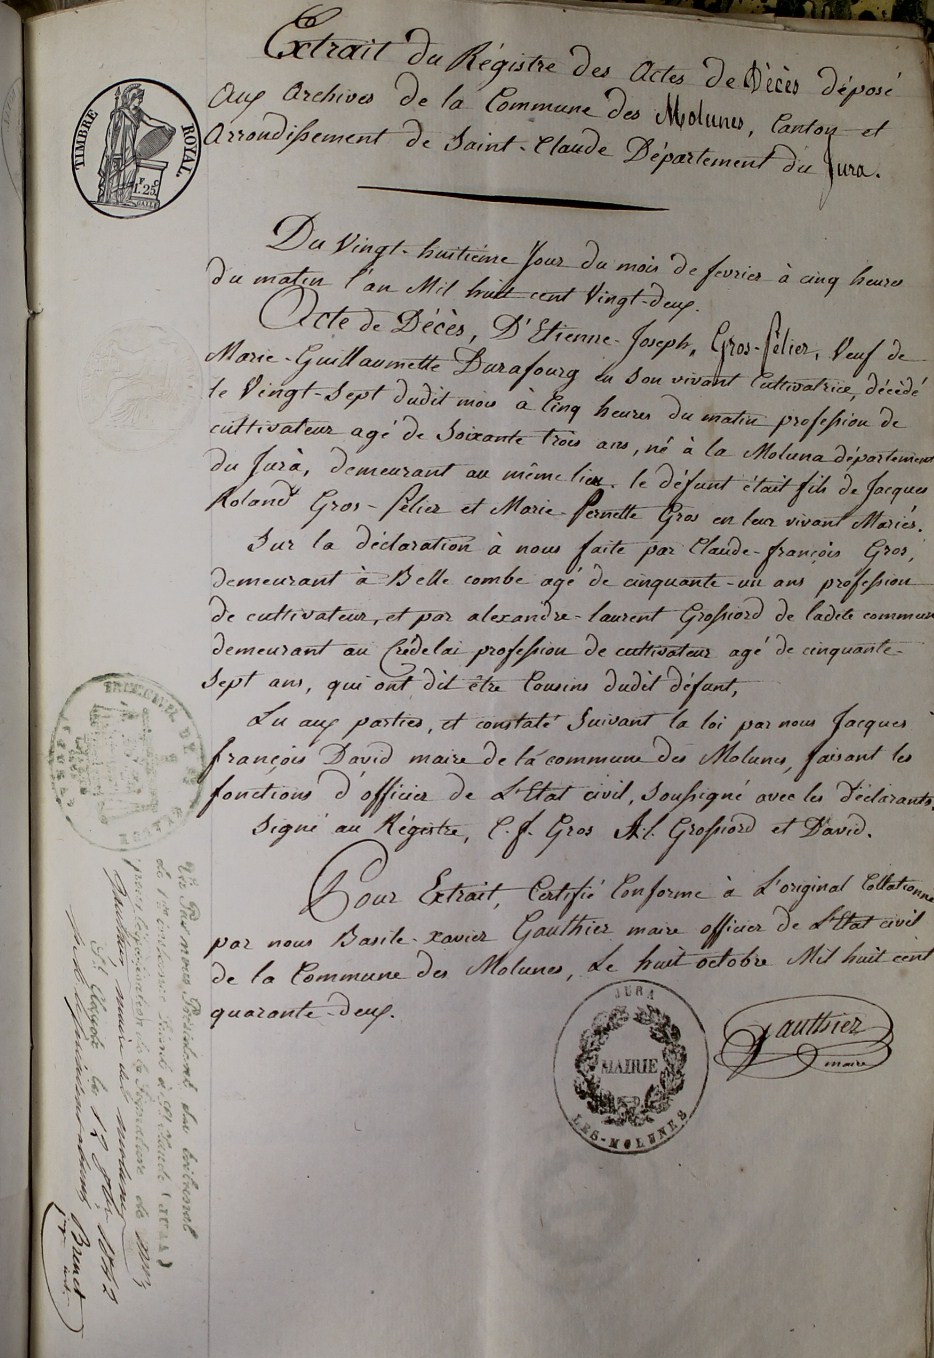 Extrait du Régistre des Actes de Décès déposé
aux Archives de la Commune des Molunes, Canton et
Arrondissement de Saint-Claude Département du Jura.
TIMBRE ROYAL.
1. 25
Du Vingt-huitième Jour du mois de fevrier à cinq heures
du matin l'an Mil huit cent Vingt-deux.
Acte de Décès, D'Etienne-Joseph, Gros-félier, Veuf de
Marie-Guillaumette Durafourg en son vivant Cultivatrice, décédé
le Vingt-Sept dudit mois à Cinq heures du matin profession de
cultivateur agé de Soixante trois ans, né à la Moluna département
du Jura, demeurant au même lieu. le défunt était fils de Jacques
Roland Gros-félier et Marie-Pernette Gros en leur vivant Mariés.
Sur la déclaration à nous faite par Claude-françois Gros,
demeurant à Belle combe agé de cinquante-un ans profession
de cultivateur, et par alexandre-laurent Grossiord de ladite commune
demeurant au Crêdelai profession de cultivateur agé de cinquante-
Sept ans, qui ont dit être Cousins dudit défunt,
Lu aux parties, et constaté Suivant la loi par nous Jacques
françois David maire de la commune des Molunes, faisant les
fonctions d'officier de L'Etat civil, Soussigné avec les déclarants.
Signé au Régistre, C. f. Gros A. l. Grossiord et David.
Pour Extrait, Certifié Conforme à L'original Collationné
par nous Basile-xavier Gauthier maire officier de L'Etat civil
de la Commune des Molunes, Le huit octobre Mil huit cent
quarante-deux.
JURA
MAIRIE
LES-MOLUNES
Gauthier
maire
Vu Par nous Président du tribunal
de 1ère instance séant à St Claude (Jura)
pour légalisation de la Signature de Mr
Gauthier, maire des molunes
St Claude le 12 8bre 1842
Brunet